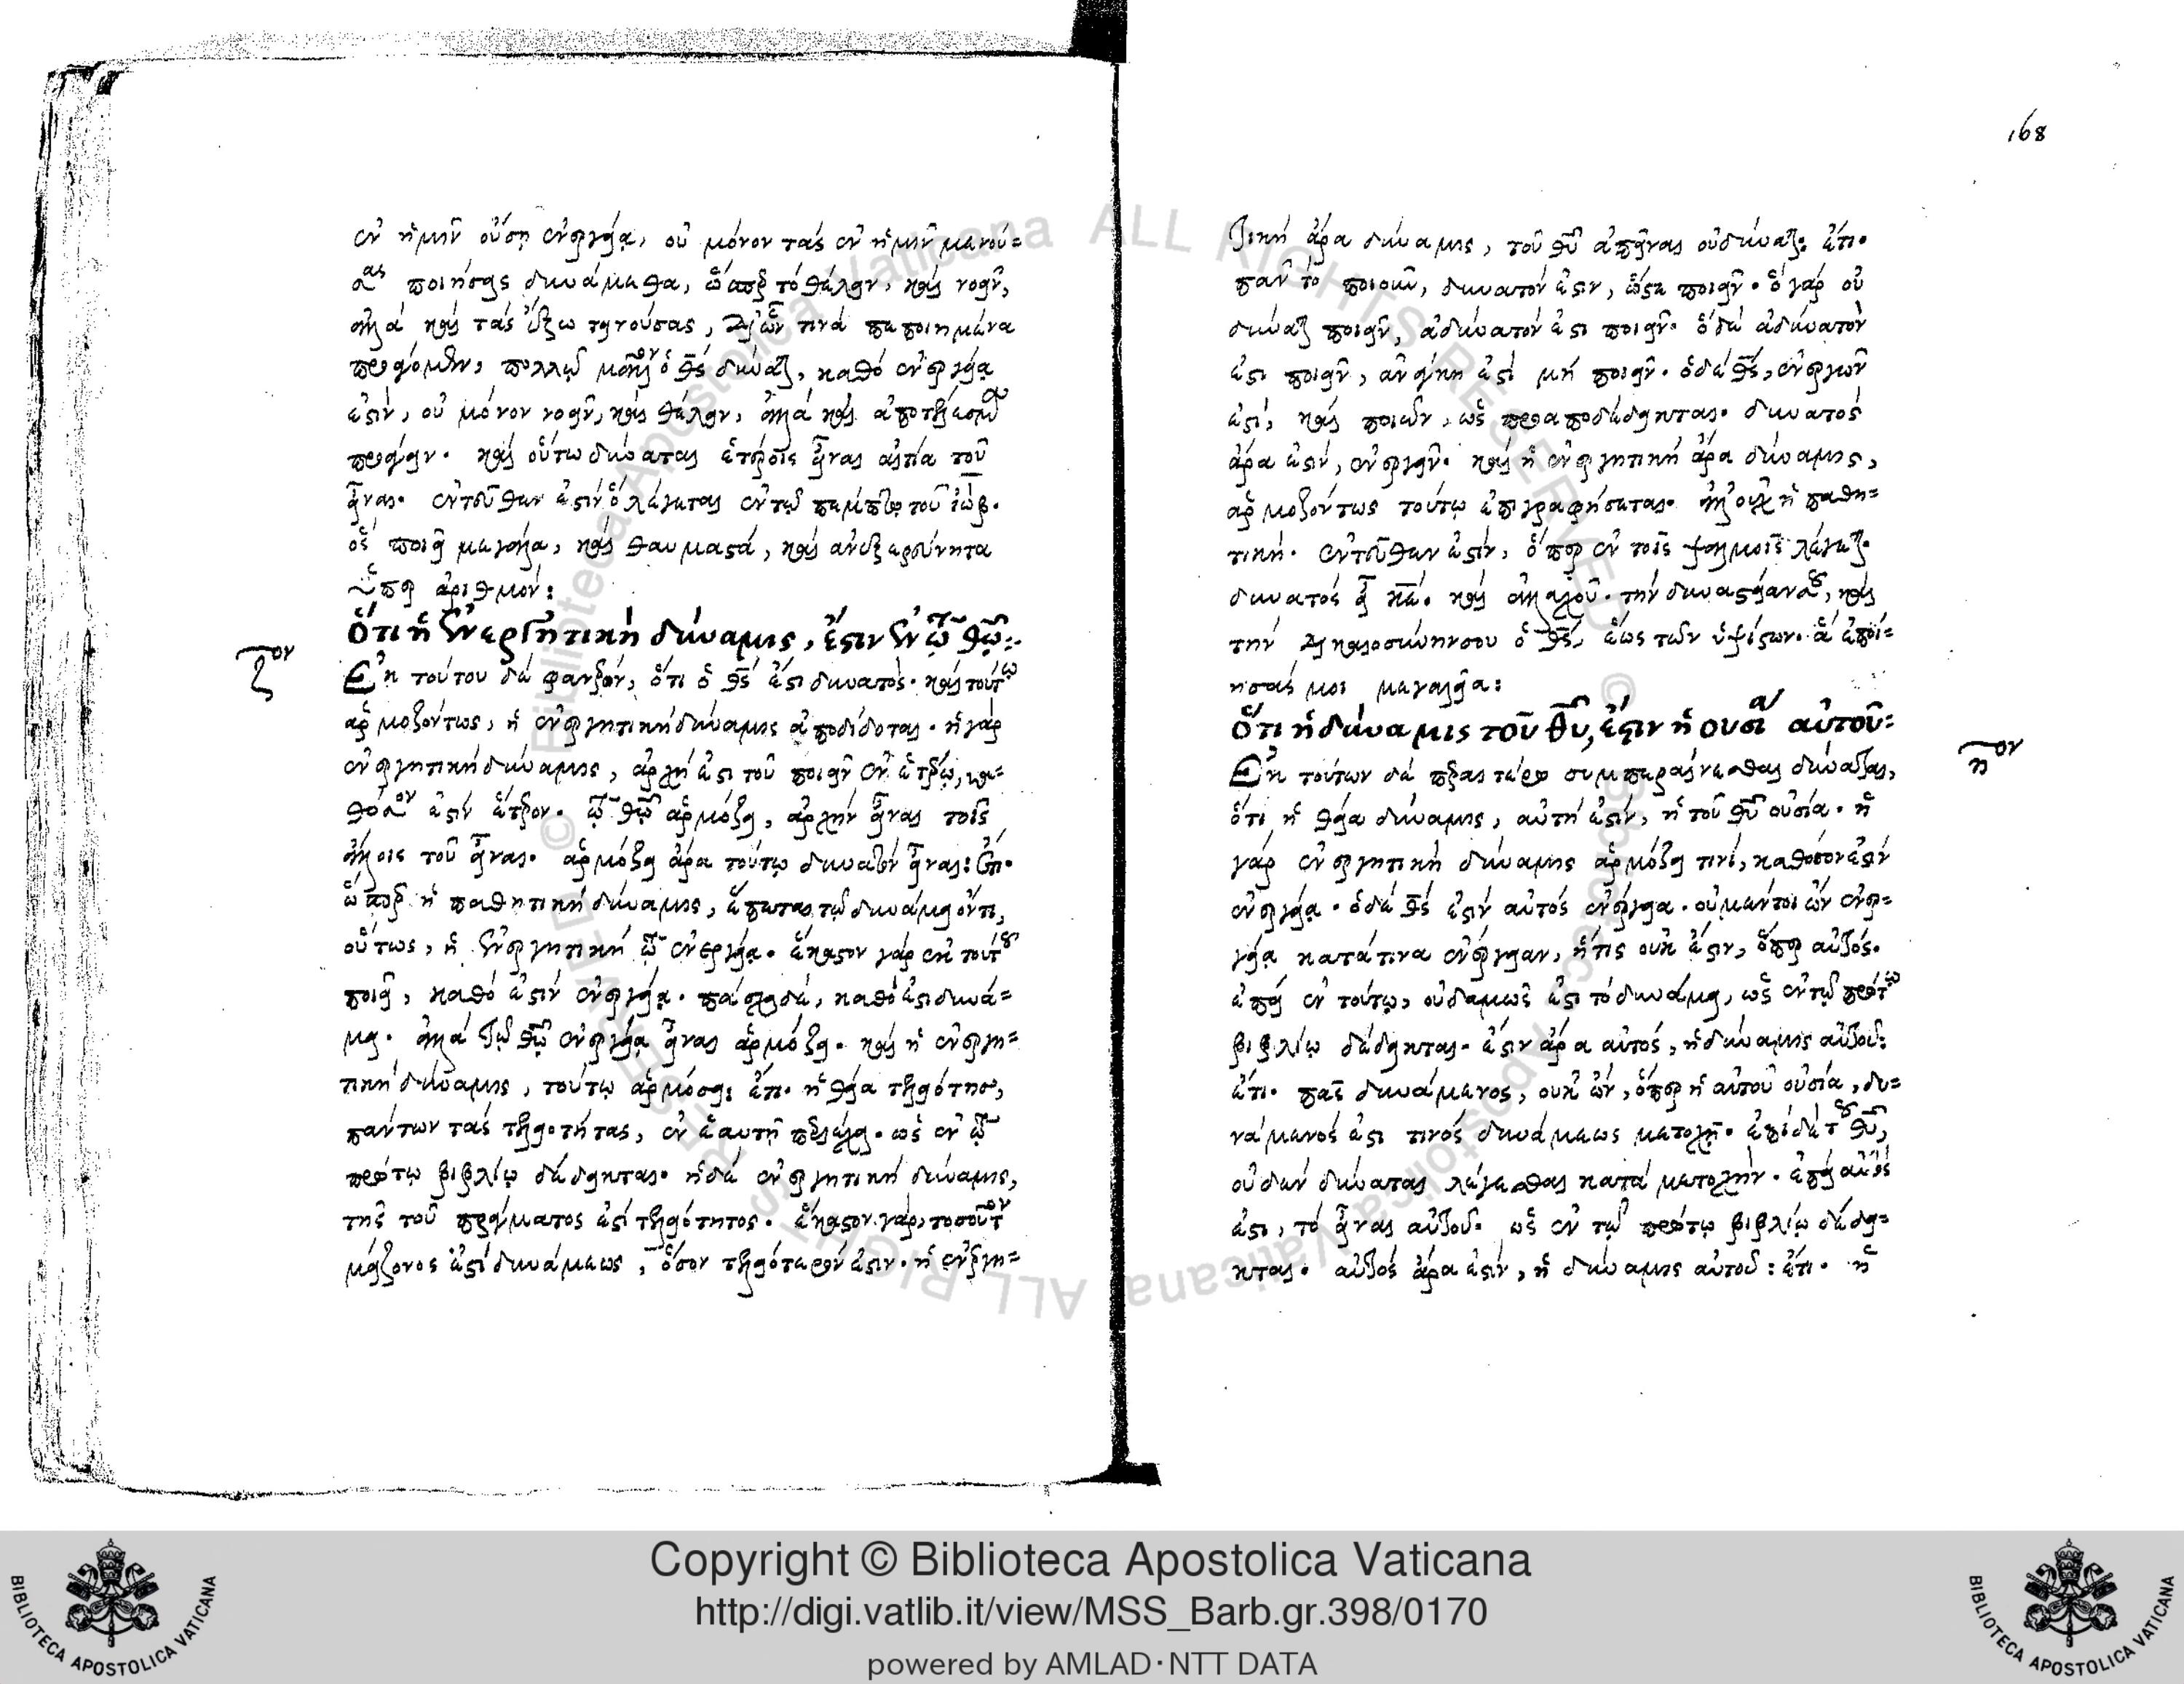 ἐν ἡμῖν οὔσῃ ἐνεργείᾳ, οὐ μόνον τάς ἐν ἡμῖν μενού=
σας ποιήσεις δυνάμεθα, ὥσπερ τό θέλειν, καί νοεῖν,
ἀλλά καί τάς ἔξω τεινούσας, δι' ὧν τινά πεποιημένα
προάγομεν, πολλῷ μᾶλλον ὁ θς δύναται, καθό ἐνεργείᾳ
ἐστίν, οὐ μόνον νοεῖν, καί θέλειν, ἀλλά καί ἀποτέλεσμα
προάγειν. καί οὕτω δύναται ἑτέροις εἶναι αἰτία τοῦ
εἶναι. ἐντεῦθεν ἐστίν ὅ λέγεται ἐν τῷ πέμπτῳ τοῦ ἰώβ.
ὅς ποιεῖ μεγάλα, καί θαυμαστά, καί ἀνεξερεύνητα
ὑπέρ ἀριθμόν:
Ὅτι ἡ ἐνεργητική δύναμις, ἔστιν ἐν τῷ θῷ:
ζον
Ἐκ τούτου δέ φανερόν, ὅτι ὁ θς ἐστι δυνατός. καί τούτῳ
ἁρμοζόντως, ἡ ἐνεργητική δύναμις ἀποδίδοται. ἡ γάρ
ἐνεργητική δύναμις, ἀρχή ἐστι τοῦ ποιεῖν ἐν ἑτέρῳ, κα=
θόσον ἐστίν ἕτερον. τῷ θῷ ἁρμόζει, ἀρχήν εἶναι τοῖς
ἄλλοις τοῦ εἶναι. ἁρμόζει ἄρα τούτῳ δυνατόν εἶναι: Ἔτι.
ὥσπερ ἡ παθητική δύναμις, ἕπεται τῷ δυνάμει ὄντι,
οὕτως, ἡ ἐνεργητική τῷ ἐνεργείᾳ. ἕκαστον γάρ ἐκ τούτου
ποιεῖ, καθό ἐστίν ἐνεργείᾳ. πάσχει δέ, καθό ἐστι δυνά=
μει. ἀλλά τῷ θῷ ἐνεργείᾳ εἶναι ἁρμόζει. καί ἡ ἐνεργη=
τική δύναμις, τούτῳ ἁρμόσει: ἔτι. ἡ θεία τελειότης,
πάντων τάς τελειότητας, ἐν ἑαυτῇ περιέχει. ὡς ἐν τῷ
πρώτῳ βιβλίῳ δέδεικται. ἡ δέ ἐνεργητική δύναμις,
τῆς τοῦ πράγματος ἐστί τελειότητος. ἕκαστον γάρ, τοσοῦτον
μείζονος ἐστί δυνάμεως, ὅσον τελειότερόν ἐστιν. ἡ ἐνεργη=
168
τική ἄρα δύναμις, τοῦ θῦ ἀπεῖναι οὐ δύναται: ἔτι.
πᾶν τό ποιοῦν, δυνατόν ἐστιν, ὥστε ποιεῖν. ὅ γάρ οὐ
δύναται ποιεῖν, ἀδύνατόν ἐστι ποιεῖν. ὅ δέ ἀδύνατόν
ἐστι ποιεῖν, ἀνάγκη ἐστί μή ποιεῖν. ὁ δέ θς, ἐνεργῶν
ἐστί, καί ποιῶν, ὡς προαποδέδεικται. δυνατός
ἄρα ἐστίν, ἐνεργεῖν. καί ἡ ἐνεργητική ἄρα δύναμις,
ἁρμοζόντως τούτῳ ἐπιγραφήσεται. ἀλλ' οὐχ ἡ παθη=
τική. ἐντεῦθεν ἐστίν, ὅπερ ἐν τοῖς ψαλμοῖς λέγεται.
δυνατός εἶ κε. καί ἀλλαχοῦ. τήν δυναστείαν σου, καί
τήν δικαιοσύνην σου ὁ θς, ἕως τῶν ὑψίστων. ἅ ἐποί=
ησάς μοι μεγαλεῖα:
Ὅτι ἡ δύναμις τοῦ θῦ, ἐστιν ἡ οὐσία αὐτοῦ:
ηον
Ἐκ τούτων δέ περαιτέρω συμπεραίνεσθαι δύναται,
ὅτι ἡ θεία δύναμις, αὐτή ἐστιν, ἡ τοῦ θῦ οὐσία. ἡ
γάρ ἐνεργητική δύναμις ἁρμόζει τινί, καθόσον ἐστίν
ἐνεργείᾳ. ὁ δέ θς ἐστιν αὐτός ἐνέργεια. οὐ μέντοι ὤν ἐνερ=
γείᾳ κατά τινα ἐνέργειαν, ἥτις οὐκ ἔστιν, ὅπερ αὐτός.
ἐπεί ἐν τούτῳ, οὐδαμῶς ἐστι τό δυνάμει, ὡς ἐν τῷ πρώτῳ
βιβλίῳ δέδεικται. ἔστιν ἄρα αὐτός, ἡ δύναμις αὐτοῦ:
ἔτι. πᾶς δυνάμενος, οὐκ ὤν, ὅπερ ἡ αὐτοῦ οὐσία, δυ=
νάμενός ἐστι τινός δυνάμεως μετοχῇ. ἐπί δέ τοῦ θῦ,
οὐδέν δύναται λέγεσθαι κατά μετοχήν. ἐπεί αὐτός
ἐστι, τό εἶναι αὐτοῦ. ὡς ἐν τῷ πρώτῳ βιβλίῳ δέδει=
κται. αὐτός ἄρα ἐστίν, ἡ δύναμις αὐτοῦ: ἔτι. ἡ
Copyright © Biblioteca Apostolica Vaticana
http://digi.vatlib.it/view/MSS_Barb.gr.398/0170
powered by AMLAD·NTT DATA
BIBLIOTECA APOSTOLICA VATICANA
BIBLIOTECA APOSTOLICA VATICANA